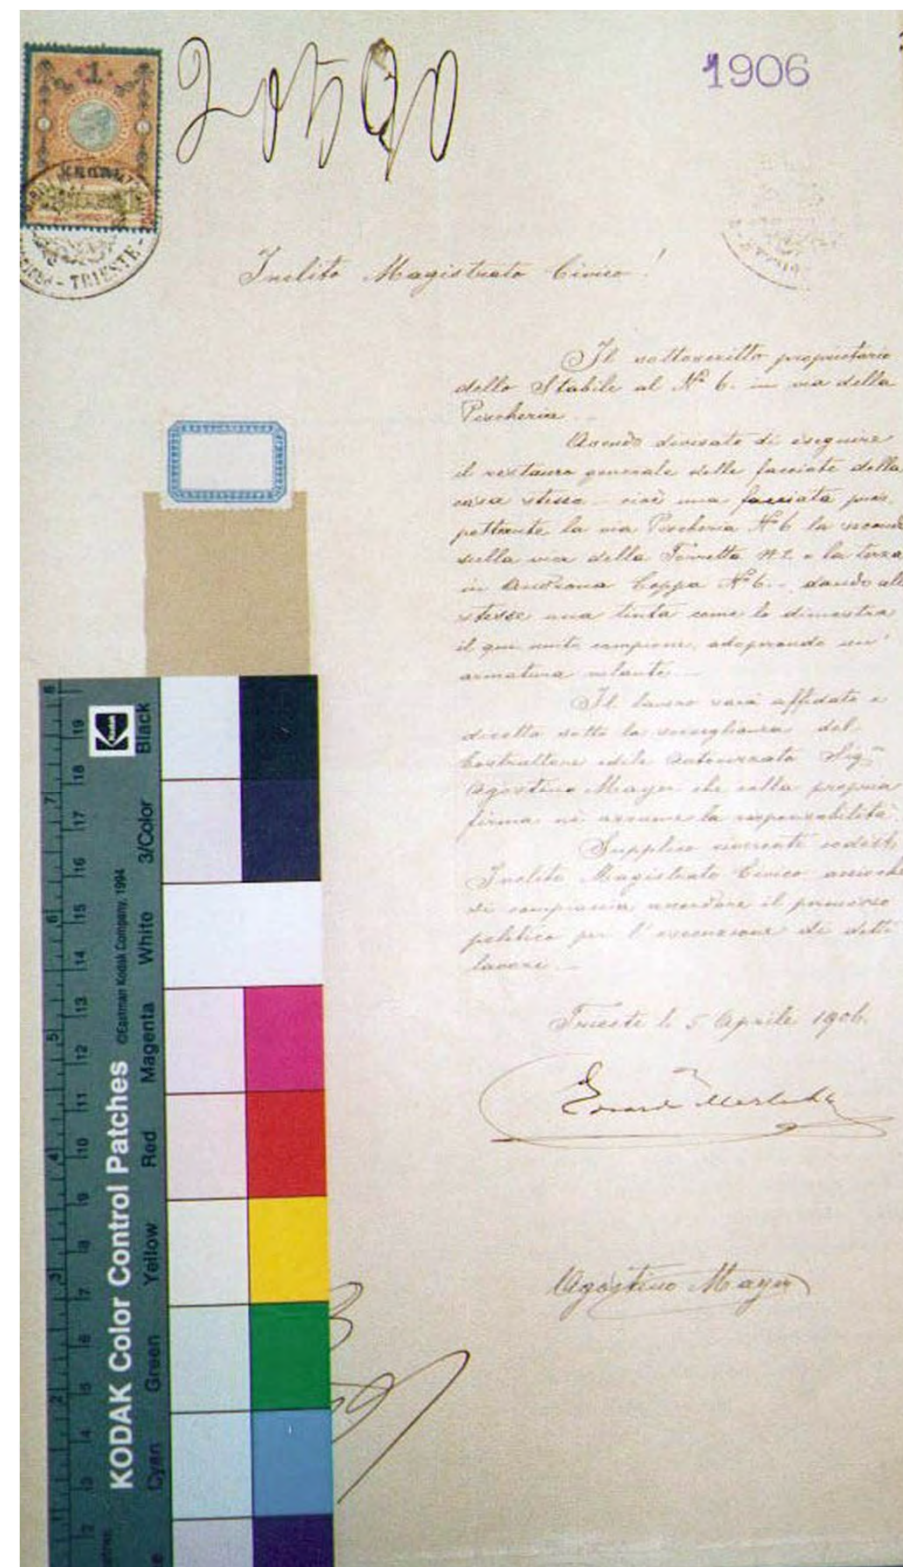 1
1906
TRIESTE
Inclito Magistrato Civico!
Il sottoscritto proprietario
dello Stabile al Nº 6. in via della
Pescheria
Avendo divisato di eseguire
il restauro generale delle facciate della
casa stessa cioè una facciata pros
pettante la via Pescheria Nº 6 la second
sulla via della Torretta Nº 2. e la terza
in Androna Coppa Nº 6. dando all
stesse una tinta come lo dimostra
il qui unito campione, adoperando un'
armatura volante
Il lavoro sarà affidato e
diretto sotto la sorveglianza del
Costruttore edile autorizzato Sigr
Agostino Mayer che colla propria
firma ne assume la responsabilità.
Supplico riverente codest
Inclito Magistrato Civico acciochè
si compiaccia accordare il permesso
politico per l'esecuzione di detti
lavori
Trieste li 5 Aprile 1906.
Agostino Mayer
KODAK Color Control Patches
©Eastman Kodak Company, 1994
Kodak
Black
3/Color
White
Magenta
Red
Yellow
Green
Cyan
19
18
17
16
15
14
13
12
11
10
9
8
7
6
5
4
3
2
8
7
6
5
4
3
2
1